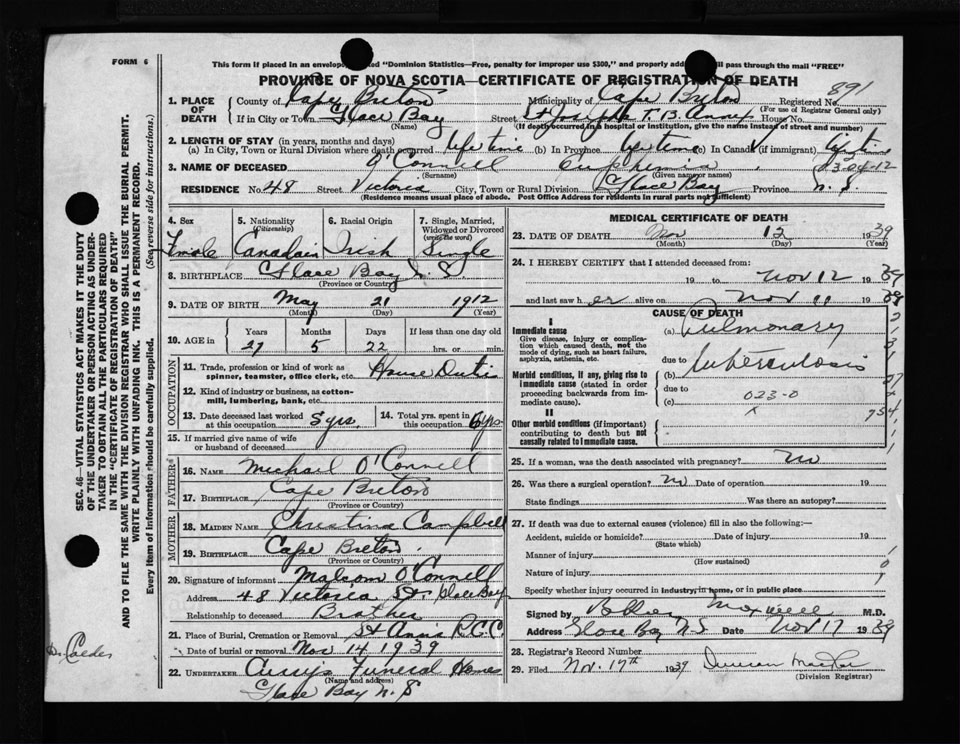 FORM 6
This form if placed in an envelope "Dominion Statistics—Free, penalty for improper use $300," and properly will pass through the mail "FREE"
PROVINCE OF NOVA SCOTIA—CERTIFICATE OF REGISTRATION OF DEATH
891
1. PLACE OF DEATH County of Cape Breton Municipality of Cape Breton Registered No.
(For use of Registrar General only)
If in City or Town Glace Bay (Name) Street St Josephs T. B. Annex House No.
(If death occurred in a hospital or institution, give the name instead of street and number)
2. LENGTH OF STAY (in years, months and days)
(a) In City, Town or Rural Division where death occurred life time (b) In Province life time (c) In Canada (if immigrant) life time
3. NAME OF DECEASED O'Connell (Surname) Euphemia (Given name or names)
RESIDENCE No. 48 Street Victoria City, Town or Rural Division Glace Bay Province N. S.
(Residence means usual place of abode. Post Office Address for residents in rural parts not sufficient)
4. Sex Fmale
5. Nationality (Citizenship) Canadain
6. Racial Origin Irish
7. Single, Married, Widowed or Divorced (write the word) Single
8. BIRTHPLACE Glace Bay N. S.
(Province or Country)
9. DATE OF BIRTH May 21 1912
(Month) (Day) (Year)
10. AGE in Years Months Days If less than one day old
27 5 22 hrs. or min.
OCCUPATION
11. Trade, profession or kind of work as spinner, teamster, office clerk, etc. House Dutis
12. Kind of industry or business, as cotton-mill, lumbering, bank, etc.
13. Date deceased last worked at this occupation 5 yrs.
14. Total yrs. spent in this occupation 6 yrs.
15. If married give name of wife or husband of deceased
FATHER
16. NAME Michael O'Connell
17. BIRTHPLACE Cape Breton
(Province or Country)
MOTHER
18. MAIDEN NAME Christina Campbell
19. BIRTHPLACE Cape Breton
(Province or Country)
20. Signature of informant Malcom O'Connell
Address 48 Victoria St. Glace Bay
Relationship to deceased Brother
21. Place of Burial, Cremation or Removal St Anns R.C.C.
Date of burial or removal Nov 14 1939
22. UNDERTAKER Currys Funeral Home
(Name and Address)
Glace Bay N. S
MEDICAL CERTIFICATE OF DEATH
23. DATE OF DEATH Nov 12 1939
(Month) (Day) (Year)
24. I HEREBY CERTIFY that I attended deceased from:
19 to Nov 12 1939
and last saw h er alive on Nov 11 1939
CAUSE OF DEATH
I
Immediate cause
Give disease, injury or complication which caused death, not the mode of dying, such as heart failure, asphyxia, asthenia, etc.
(a) Pulmonary
due to
Morbid conditions, if any, giving rise to immediate cause (stated in order proceeding backwards from immediate cause).
(b) tuberculosis
due to
(c) 023-0
II
Other morbid conditions (if important) contributing to death but not causally related to immediate cause.
x
25. If a woman, was the death associated with pregnancy? No
26. Was there a surgical operation? No Date of operation 19
State findings Was there an autopsy?
27. If death was due to external causes (violence) fill in also the following:—
Accident, suicide or homicide? Date of injury 19
(State which)
Manner of injury
(How sustained)
Nature of injury
Specify whether injury occurred in industry, in home, or in public place
Signed by Maxwell M.D.
Address Glace Bay N.S Date Nov 17 1939
28. Registrar's Record Number
29. Filed Nov. 17th 1939 Duncan
(Division Registrar)
SEC. 46—VITAL STATISTICS ACT MAKES IT THE DUTY
OF THE UNDERTAKER OR PERSON ACTING AS UNDER-
TAKER TO OBTAIN ALL THE PARTICULARS REQUIRED
IN THE "CERTIFICATE OF REGISTRATION OF DEATH"
AND TO FILE THE SAME WITH THE DIVISION REGISTRAR WHO SHALL ISSUE THE BURIAL PERMIT.
WRITE PLAINLY WITH UNFADING INK. THIS IS A PERMANENT RECORD.
Every item of information should be carefully supplied. (See reverse side for instructions.)
Dr. Calder